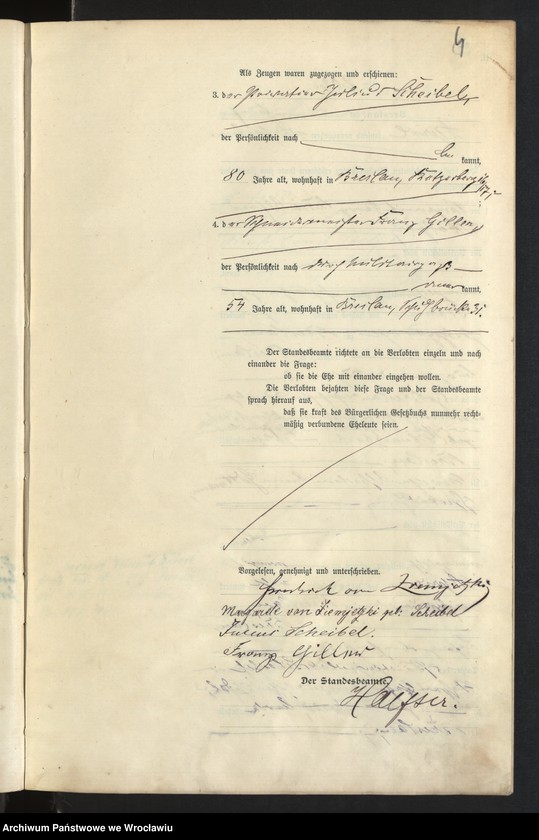 4
Als Zeugen waren zugezogen und erschienen:
3. der Privatier Julius Scheibel,
der Persönlichkeit nach
be kannt,
80 Jahre alt, wohnhaft in Breslau,
4. der Schneidermeister Franz Giller,
der Persönlichkeit nach durch Militairpaß
aner kannt,
54 Jahre alt, wohnhaft in Breslau, Schuhbrücke 35.
Der Standesbeamte richtete an die Verlobten einzeln und nach
einander die Frage:
ob sie die Ehe mit einander eingehen wollen.
Die Verlobten bejahten diese Frage und der Standesbeamte
sprach hierauf aus,
daß sie kraft des Bürgerlichen Gesetzbuchs nunmehr recht-
mäßig verbundene Eheleute seien.
Vorgelesen, genehmigt und unterschrieben.
von
von Ziemietzki geb. Scheibel
Julius Scheibel.
Franz Giller
Der Standesbeamte.
Archiwum Państwowe we Wrocławiu